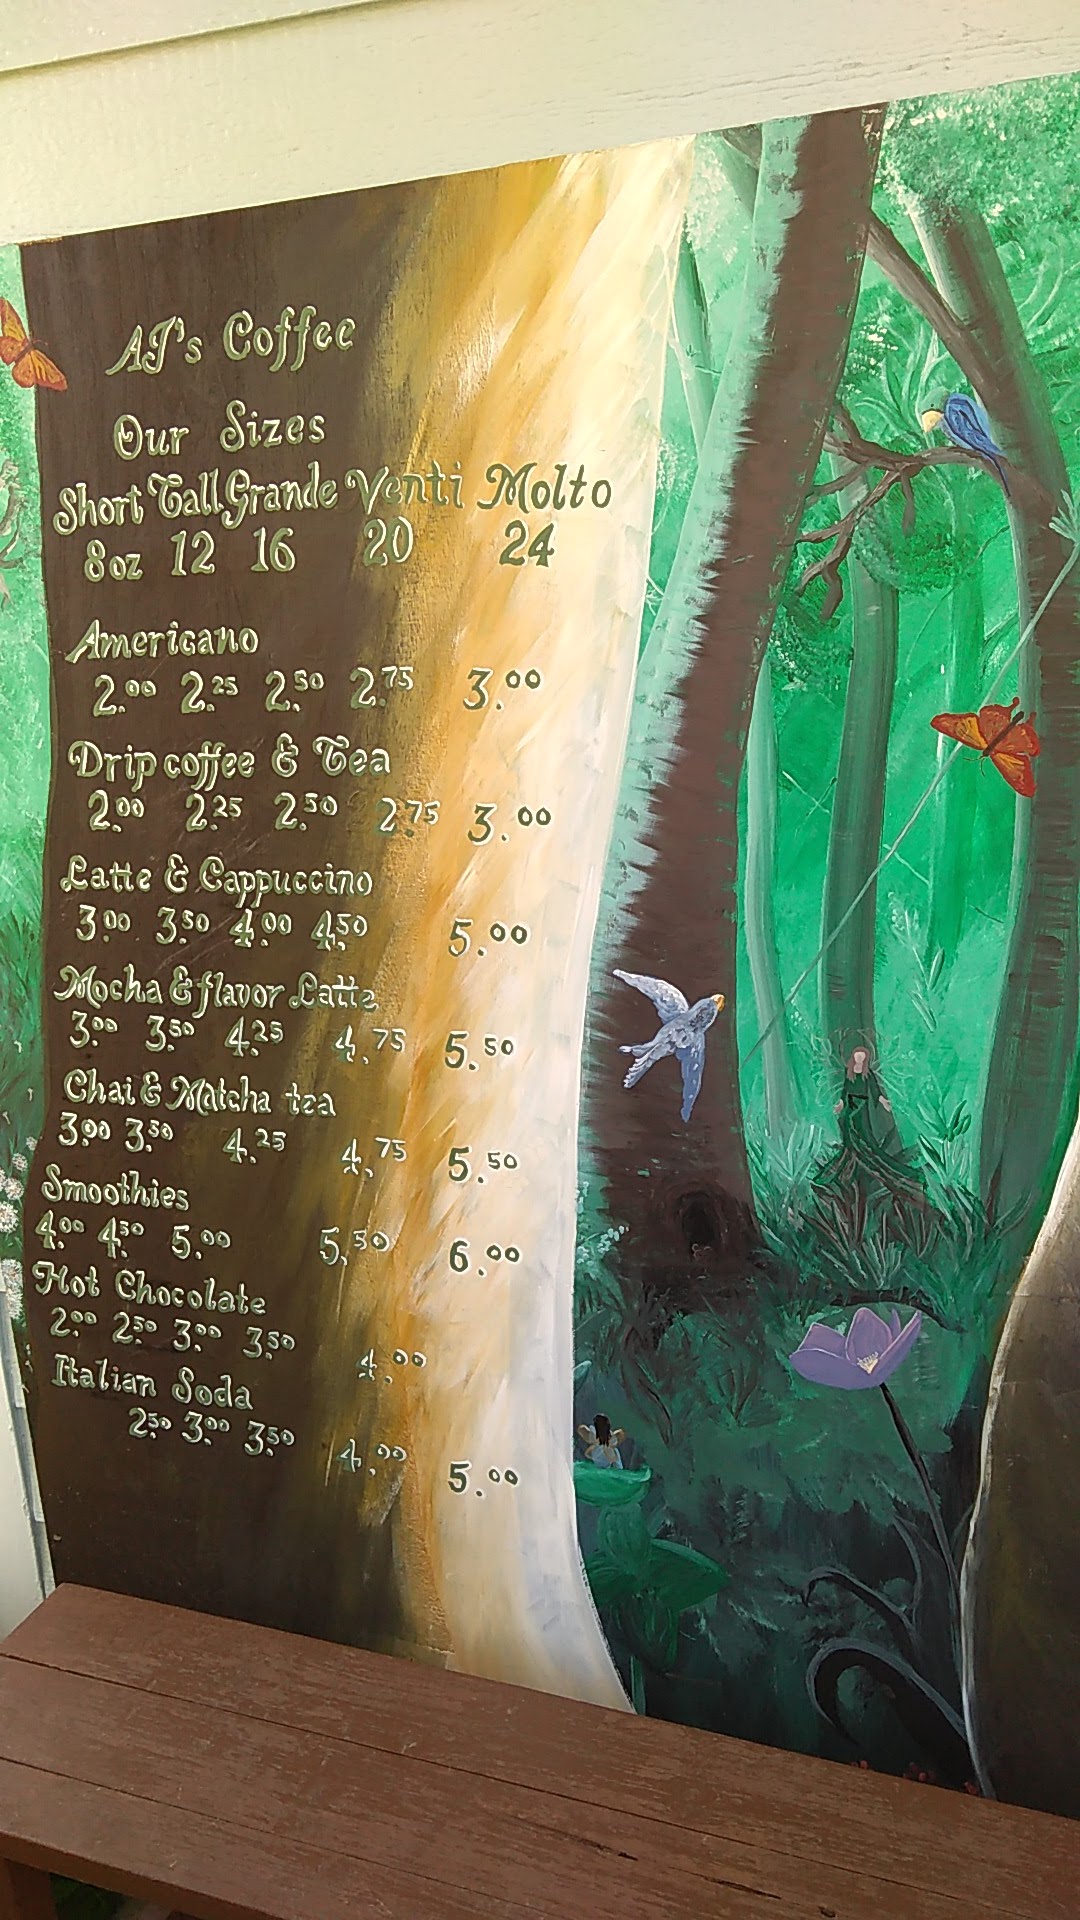 AJ's Coffee
Our Sizes
Short Tall Grande Venti Molto
8oz 12 16 20 24
Americano
2.00 2.25 2.50 2.75 3.00
Drip coffee & Tea
2.00 2.25 2.50 2.75 3.00
Latte & Cappuccino
3.00 3.50 4.00 4.50 5.00
Mocha & flavor Latte
3.00 3.50 4.25 4.75 5.50
Chai & Matcha tea
3.00 3.50 4.25 4.75 5.50
Smoothies
4.00 4.50 5.00 5.50 6.00
Hot Chocolate
2.00 2.50 3.00 3.50 4.00
Italian Soda
2.50 3.00 3.50 4.00 5.00